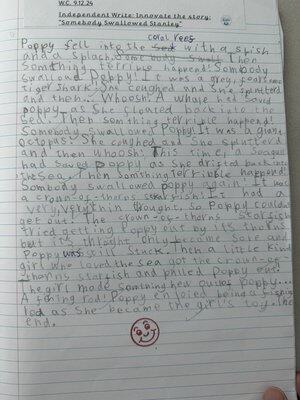 W.C. 9.12.24
Independent Write: Innovate the story:
"Somebody Swallowed Stanley"
coral reef
Poppy fell into the sea with a splish
and a splash. Some body swall Then
Somthing terrible happend! Sombody
swallowd Poppy! It was a grey, fearsome
tiger shark. She coughed and She splutterd
and then... Whoosh! A whale had saved
poppy as She floated back into the
sea. Then somthing terrible happend!
Somebody Swallowed Poppy! It was a giant
octopus. She coughed and She splutterd
and then whoosh! This time a Seagull
had Saved Poppy as She drifted back into
the sea. Then Somthing terrible happend!
Sombody swallowed poppy again! It was
a crown-of-thorns starfish! It had a
very, very thin thought. So Poppy couldn't
get out! The crown-of-thorns starfish
tried getting Poppy out by its thorns
but it's throght only became sore and
Poppy was still stuck. Then a little kind
girl who loved the sea got the crown-of-
thorns starfish and pulled Poppy out!
The girl made somthing new out of poppy...
A fishing rod! Poppy enjoied being a fishing
rod as She became the girl's toy. The
end.